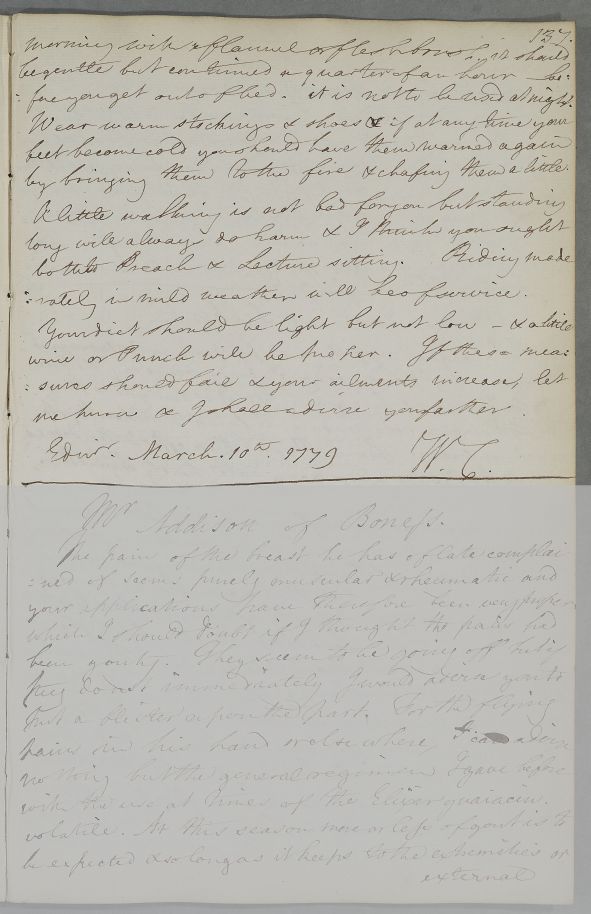 137.
morning with a flannel or flesh brush, it should
be gentle but continued a quarter of an hour be:
:fore you get out of bed. it is not to be used at night.
Wear warm stockings & shoes & if at any time your
feet become cold you should have them warmed again
by bringing them to the fire & chafing them a little.
A little walking is not bad for you but standing
long will always do harm & I think you ought
both to Preach & Lecture sitting. Riding mode
:rately in mild weather will be of service.
Your diet should be light but not low – & a little
wine or Punch will be proper. If these mea:
:sures should fail & your ailments increase, let
me know & I shall advise you farther.
Edinr. March. 10th. 1779 W. C.
Mr Addison of Boness.
The pain of the breast he has of late complai
:ned of seems purely muscular & rheumatic and
your applications have therefore been very proper
which I should doubt if I thought the pains had
been gouty. They seem to be going off but if
they do not immediately I would advise you to
put a blister upon the part. For the flying
pains in his hand or elsewhere, I can advise
nothing but the general regimen I gave before
with the use at times of the Elixir guaiacin.
volatile. At this season more or less of gout is to
be expected & so long as it keeps to the extremities or
external